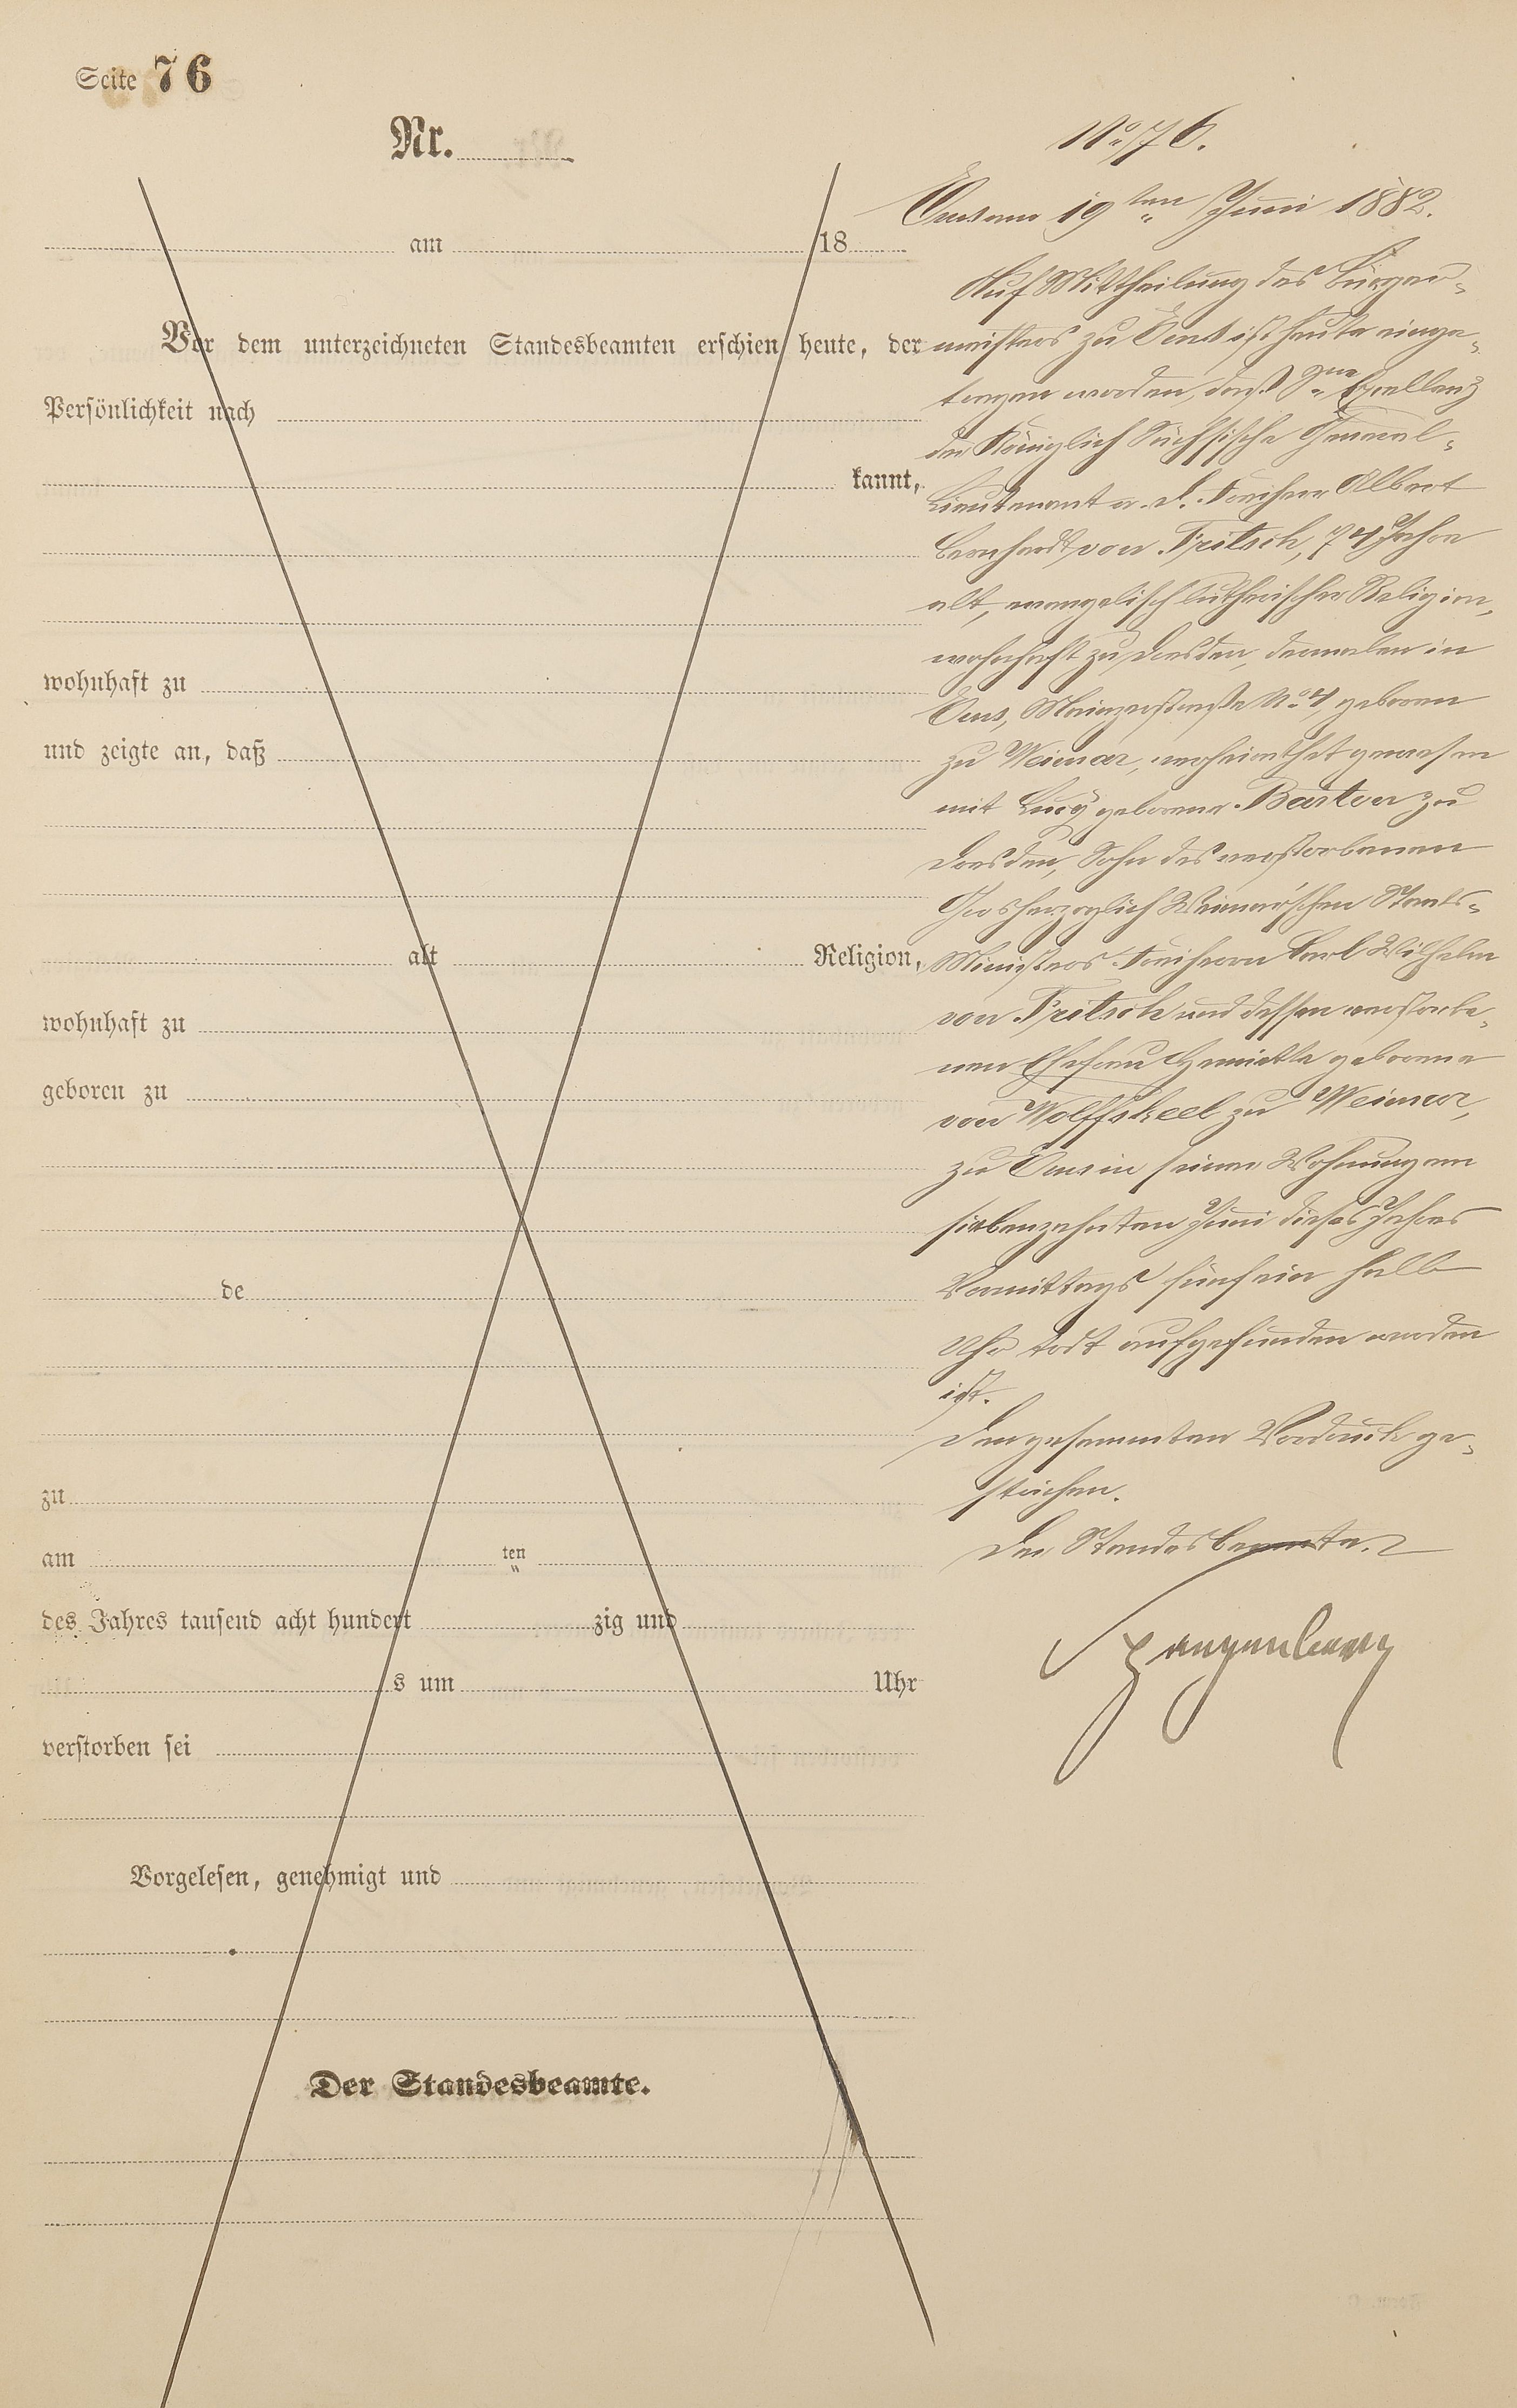 Seite 76
Nr.
am 18
Vor dem unterzeichneten Standesbeamten erschien heute, der
Persönlichkeit nach
kannt,
wohnhaft zu
und zeigte an, daß
alt Religion,
wohnhaft zu
geboren zu
de
zu
am ten
des Jahres tausend acht hundert zig und
s um Uhr
verstorben sei
Vorgelesen, genehmigt und
Der Standesbeamte.
No. 76.
Ems am 19ten Juni 1882.
Auf Mittheilung des Bürger-
meisters zu Ems ist heute einge-
tragen worden, daß Sne Exellenz
der Königlich Sächsische General-
Lieutenant a. D. Freiherr Albert
Bernhardt von Fritsch, 74 Jahre
alt, evangelisch lutherischer Religion,
wohnhaft zu Dresden, dermalen in
Ems, Mainzerstraße No. 4, geboren
zu Weimar, verheirathet gewesen
mit Lucy geborene Barton zu
Dresden, Sohn des verstorbenen
Grosherzoglich Weimar'schen Staats-
Ministers Freiherrn Carl Wilhelm
von Fritsch und dessen verstorbe-
nen Ehefrau Henriette geborene
von Wolffskeel zu Weimar,
zu Ems in seiner Wohnung am
siebenzehnten Juni dieses Jahres
Vormittags fünf ein halb
Uhr todt aufgefunden worden
ist.
Den gesammten Vordruck ge-
strichen.
Der Standesbeamte.
Spangenberg